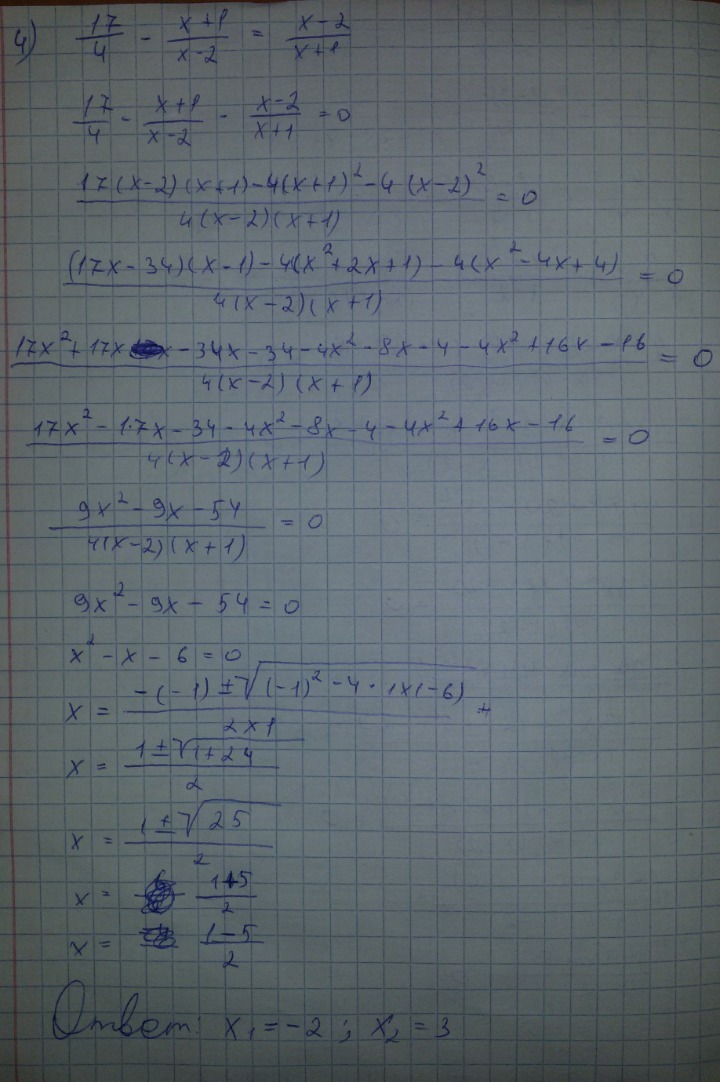 4) 17/4 - (x+1)/(x-2) = (x-2)/(x+1)
17/4 - (x+1)/(x-2) - (x-2)/(x+1) = 0
(17(x-2)(x+1)-4(x+1)²-4(x-2)²)/(4(x-2)(x+1)) = 0
((17x-34)(x-1)-4(x²+2x+1)-4(x²-4x+4))/(4(x-2)(x+1)) = 0
(17x²+17x-34x-34-4x²-8x-4-4x²+16x-16)/(4(x-2)(x+1)) = 0
(17x²-17x-34-4x²-8x-4-4x²+16x-16)/(4(x-2)(x+1)) = 0
(9x²-9x-54)/(4(x-2)(x+1)) = 0
9x²-9x-54=0
x²-x-6=0
x = (-(-1)±√((-1)²-4·1×(-6)))/(2×1)
x = (1±√(1+24))/2
x = (1±√25)/2
x = (1+5)/2
x = (1-5)/2
Ответ: x₁=-2; x₂=3